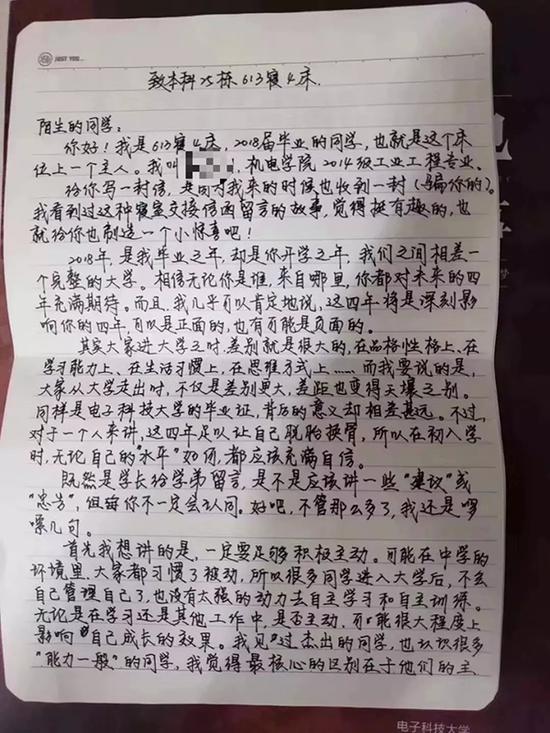 JUST YOU...
致本科25栋613寝4床.
陌生的同学：
你好！我是613寝4床，2018届毕业的同学，也就是这个床
位上一个主人。我叫，机电学院2014级工业工程专业。
给你写一封信，是因为我来的时候也收到一封（骗你的）。
我看到过这种寝室交接信函留言的故事，觉得挺有趣的，也
就给你也制造一个小惊喜吧！
2018年，是我毕业之年，却是你开学之年，我们之间相差一
个完整的大学。相信无论你是谁，来自哪里，你都对未来的四
年充满期待。而且，我几乎可以肯定地说，这四年将是深刻影
响你的四年，可以是正面的，也有可能是负面的。
其实大家进大学之时，差别就是很大的，在品格性格上、在
学习能力上、在生活习惯上，在思维方式上……而我要说的是，
大家从大学走出时，不仅是差别更大，差距也变得天壤之别。
同样是电子科技大学的毕业证，背后的意义却相差甚远。不过，
对于一个人来讲，这四年足以让自己脱胎换骨，所以在初入学
时，无论自己的“水平”如何，都应该充满自信。
既然是学长给学弟留言，是不是应该讲一些“建议”或
“忠告”，但每你不一定会认同。好吧，不管那么多了，我还是啰
嗦几句。
首先我想讲的是，一定要足够积极主动。可能在中学的
环境里，大家都习惯了被动，所以很多同学进入大学后，不会
自己管理自己了，也没有太强的动力去自主学习和自主训练。
无论是在学习还是其他工作中，是否主动，可能很大程度上
影响自己成长的效果。我见过杰出的同学，也认识很多
“能力一般”的同学，我觉得最核心的区别在于他们的主
电子科技大学